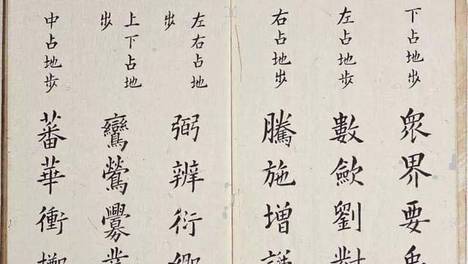 下占地步
眾界要
左占地步
數歛劉對
右占地步
騰施增
左右占地步
弼辨衍
上下占地步
鸞鶯釁
中占地步
蕃華衝